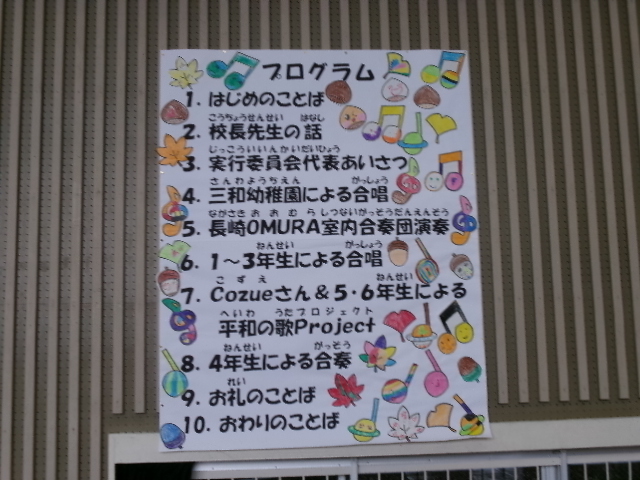 プログラム
1. はじめのことば
こうちょうせんせい はなし
2. 校長先生の話
じっこういいんかいだいひょう
3. 実行委員会代表あいさつ
さんわようちえん がっしょう
4. 三和幼稚園による合唱
ながさきおおむらしつないがっそうだんえんそう
5. 長崎OMURA室内合奏団演奏
ねんせい がっしょう
6. 1～3年生による合唱
こずえ ねんせい
7. Cozueさん&5・6年生による
へいわ うたプロジェクト
平和の歌Project
ねんせい がっそう
8. 4年生による合奏
れい
9. お礼のことば
10. おわりのことば